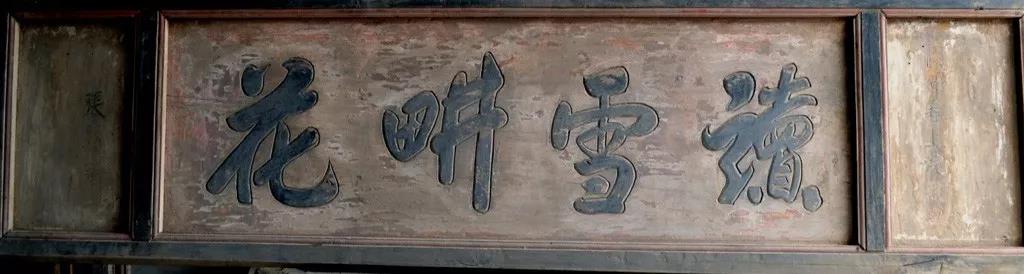 讀雪畊花
張